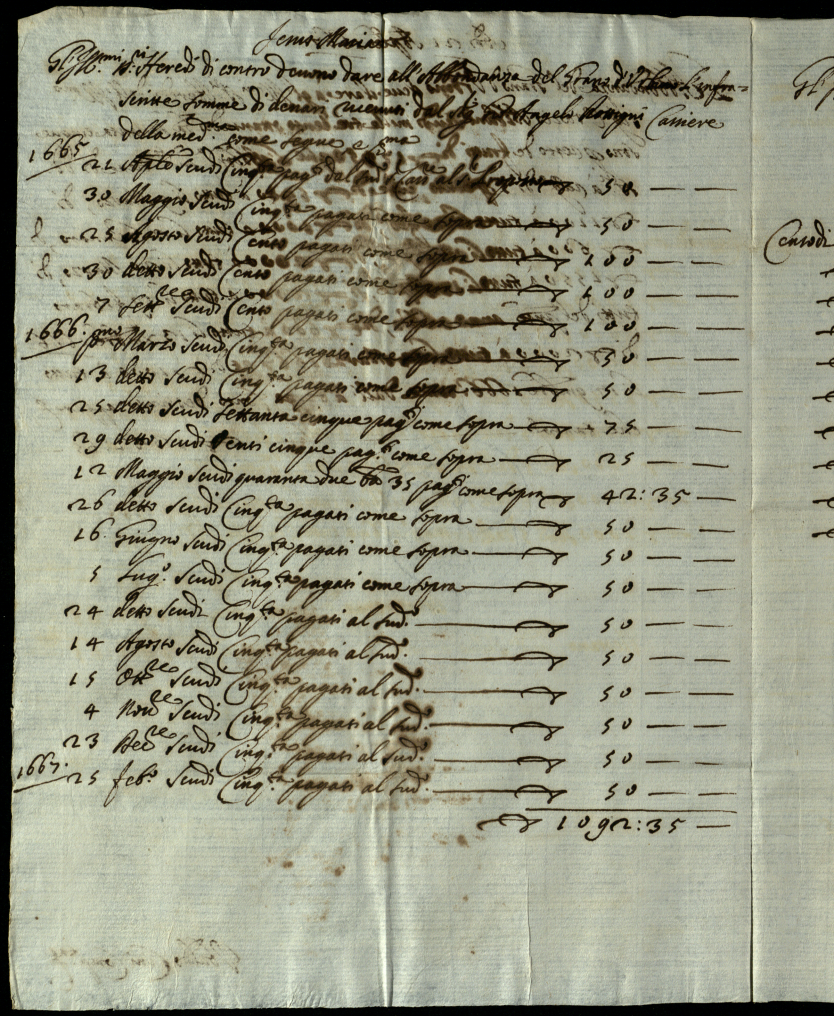 Jesus Maria
Gl'Ill.mi SS.ri Heredi di contro devono dare all'Abbondanza del Grano di l'infra=
scritte somme di denari ricevuti dal Sig.r Angelo Cassiere
della med.ma come segue e p.ma
1665
21 Aple scudi Cinq.ta pag.ti dal sud.o Cass.re al 50
30 Maggio scudi Cinq.ta pagati come sopra 50
25 Agosto scudi Cento pagati come sopra 100
30 detto scudi Cento pagati come sopra 100
7 Sett.re scudi Cento pagati come sopra 100
1666. p.mo Marzo scudi Cinq.ta pagati come sopra 50
13 detto scudi Cinq.ta pagati come sopra 50
25 detto scudi settanta cinque pag.ti come sopra 75
29 detto scudi Venti cinque pag.ti come sopra 25
12 Maggio scudi quaranta due b. 35 pag.ti come sopra 42:35
26 detto scudi Cinq.ta pagati come sopra 50
16 Giugno scudi Cinq.ta pagati come sopra 50
5 Lug.o scudi Cinq.ta pagati come sopra 50
24 detto scudi Cinq.ta pagati al sud.o 50
14 Agosto scudi Cinq.ta pagati al sud.o 50
15 Ott.re scudi Cinq.ta pagati al sud.o 50
4 Nov.re scudi Cinq.ta pagati al sud.o 50
23 Dec.re scudi Cinq.ta pagati al sud.o 50
1667. 25 feb.o scudi Cinq.ta pagati al sud.o 50
1092:35